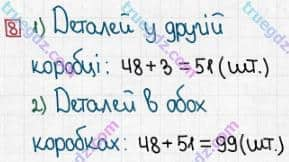 8 1) Деталей у другій
коробці: 48 + 3 = 51 (шт.)
2) Деталей в обох
коробках: 48 + 51 = 99 (шт.)